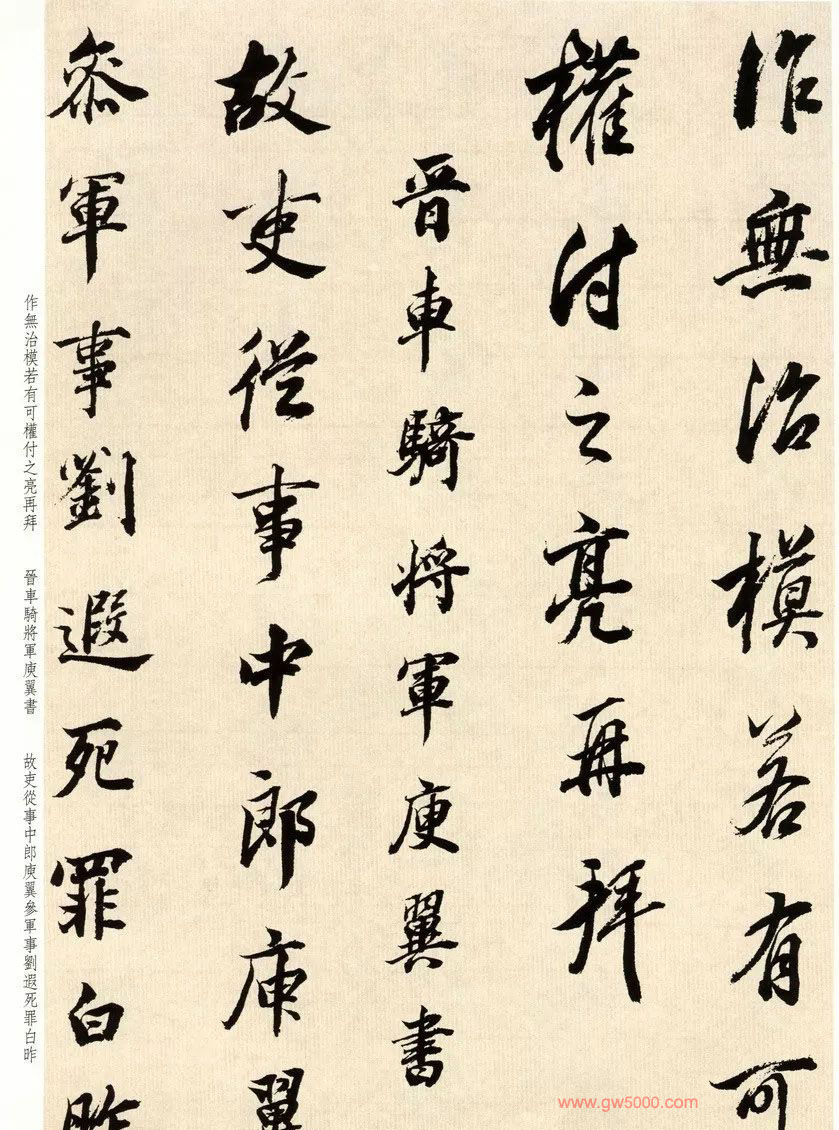 作無治模若有可
權付之亮再拜
晉車騎將軍庾翼書
故吏從事中郎庾翼
參軍事劉遐死罪白昨
作無治模若有可權付之亮再拜　晉車騎將軍庾翼書　故吏從事中郎庾翼參軍事劉遐死罪白昨
www.gw5000.com